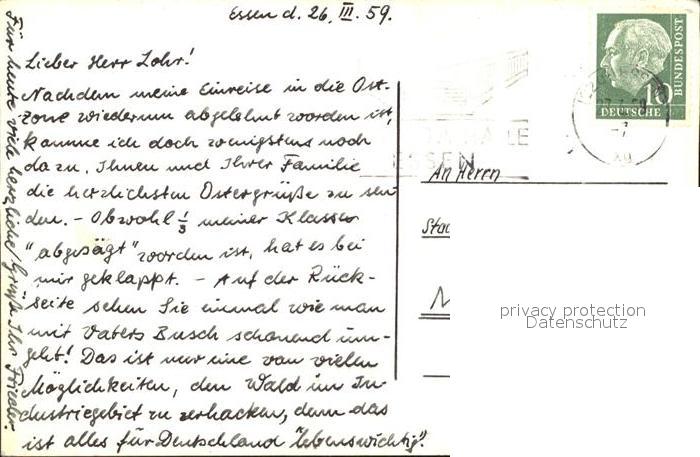 Essen d. 26. III. 59.
Lieber Herr Lohr!
Nachdem meine Einreise in die Ost-
zone wiederum abgelehnt worden ist,
komme ich doch wenigstens noch
dazu, Ihnen und Ihrer Familie
die herzlichsten Ostergrüße zu sen-
den. - Obwohl 1/3 meiner Klasse
"abgesägt" worden ist, hat es bei
mir geklappt. - Auf der Rück-
seite sehen Sie einmal wie man
mit Vaters Busch schonend um-
geht! Das ist nur eine von vielen
Möglichkeiten, den Wald im In-
dustriegebiet zu zerhacken, denn das
ist alles für Deutschland "lebenswichtig".
Für heute viele herzliche Grüße Ihr Frieder.
DEUTSCHE
BUNDESPOST
10
ESSEN
An Herrn
privacy protection
Datenschutz